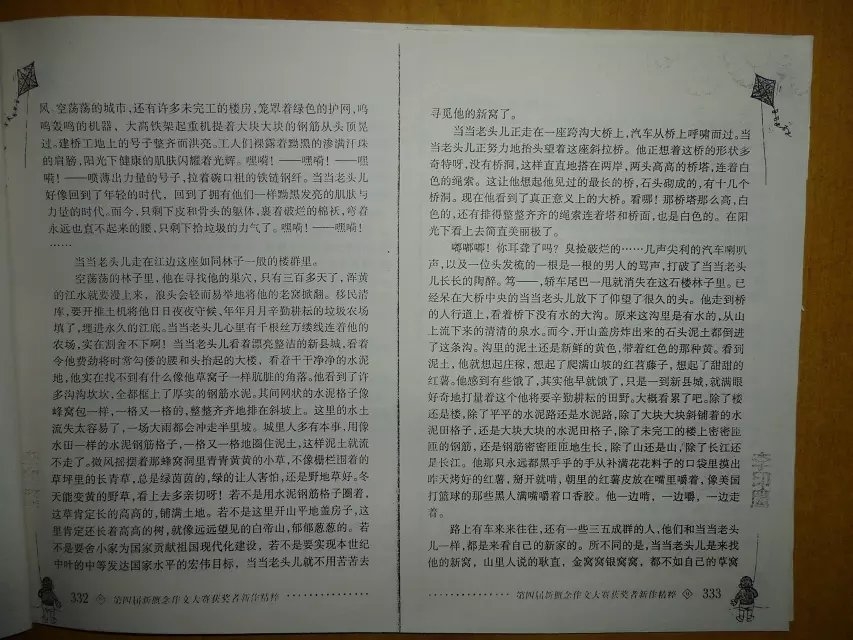 风、空荡荡的城市，还有许多未完工的楼房，笼罩着绿色的护网，呜
呜轰鸣的机器，大高铁架起重机提着大块大块的钢筋从头顶晃
过。建桥工地上的号子整齐而洪亮。工人们裸露着黝黑的渗满汗珠
的肩膀，阳光下健康的肌肤闪耀着光辉。嘿嗬！——嘿嗬！——嘿
嗬！——喷薄出力量的号子，拉着碗口粗的铁链钢纤。当当老头儿
好像回到了年轻的时代，回到了拥有他们一样黝黑发亮的肌肤与
力量的时代。而今，只剩下皮和骨头的躯体，裹着破烂的棉袄，弯着
永远也直不起来的腰，只剩下拾垃圾的力气了。嘿嗬！——嘿嗬！
……
当当老头儿走在江边这座如同林子一般的楼群里。
空荡荡的林子里，他在寻找他的巢穴，只有三百多天了，浑黄
的江水就要漫上来，浪头会轻而易举地将他的老窝掀翻。移民清
库，要开推土机将他日日夜夜守候、年年月月辛勤耕耘的垃圾农场
填了，埋进永久的江底。当当老头儿心里有千根丝万缕线连着他的
农场，实在割舍不下啊！当当老头儿看着漂亮整洁的新县城，看着
令他费劲将时常勾偻的腰和头抬起的大楼，看着干干净净的水泥
地，他实在找不到有什么像他草窝子一样肮脏的角落。他看到了许
多沟沟坎坎，全都框上了厚实的钢筋水泥。其间网状的水泥格子像
峰窝包一样，一格又一格的，整整齐齐地排在斜坡上。这里的水土
流失太容易了，一场大雨都会冲走半里坡。城里人多有本事，用像
水田一样的水泥钢筋格子，一格又一格地圈住泥土，这样泥土就流
不走了。微风摇摆着那蜂窝洞里青青黄黄的小草，不像栅栏围着的
草坪里的长青草，总是绿茵茵的，绿的让人害怕，还是野地草好。冬
天能变黄的野草，看上去多亲切呀！若不是用水泥钢筋格子圈着，
这草肯定长的高高的，铺满土地。若不是这里开山平地盖房子，这
里肯定还长着高高的树，就像远远望见的白帝山，郁郁葱葱的。若
不是要舍小家为国家贡献祖国现代化建设，若不是要实现本世纪
中叶的中等发达国家水平的宏伟目标，当当老头儿就不用苦苦去
332 第四届新概念作文大赛获奖者新作精粹
寻觅他的新窝了。
当当老头儿正走在一座跨沟大桥上，汽车从桥上呼啸而过。当
当老头儿正努力地抬头望着这座斜拉桥。他正想着这桥的形状多
奇特呀，没有桥洞，这样直直地搭在两岸，两头高高的桥塔，连着白
色的绳索。这让他想起他见过的最长的桥，石头砌成的，有十几个
桥洞。现在他看到了真正意义上的大桥。看哪！那桥塔那么高，白
色的，还有排得整整齐齐的绳索连着塔和桥面，也是白色的。在阳
光下看上去简直美丽极了。
嘟嘟嘟！你耳聋了吗？臭捡破烂的……几声尖利的汽车喇叭
声，以及一位头发梳的一根是一根的男人的骂声，打破了当当老头
儿长长的陶醉。笃——，轿车尾巴一甩就消失在这石楼林子里。已
经呆在大桥中央的当当老头儿放下了仰望了很久的头。他走到桥
的人行道上，看着桥下没有水的大沟。原来这沟里是有水的，从山
上流下来的清清的泉水。而今，开山盖房炸出来的石头泥土都倒进
了这条沟。沟里的泥土还是新鲜的黄色，带着红色的那种黄。看到
泥土，他就想起庄稼，想起了爬满山坡的红苕藤子，想起了甜甜的
红薯。他感到有些饿了，其实他早就饿了，只是一到新县城，就满眼
好奇地打量着这个他将要辛勤耕耘的田野。大概看累了吧。除了楼
还是楼，除了平平的水泥路还是水泥路，除了大块大块斜铺着的水
泥田格子，还是大块大块的水泥田格子，除了未完工的楼上密密匝
匝的钢筋，还是钢筋密密匝匝地生长，除了山还是山，除了长江还
是长江。他那只永远都黑乎乎的手从补满花花料子的口袋里摸出
昨天烤好的红薯，掰开就啃，朝里的红薯皮放在嘴里嚼着，像美国
打篮球的那些黑人满嘴嚼着口香胶。他一边啃，一边嚼，一边走
着。
路上有车来来往往，还有一些三五成群的人，他们和当当老头
儿一样，都是来看自己的新家的。所不同的是，当当老头儿是来找
他的新窝，山里人说的耿直，金窝窝银窝窝，都不如自己的草窝
第四届新概念作文大赛获奖者新作精粹 333